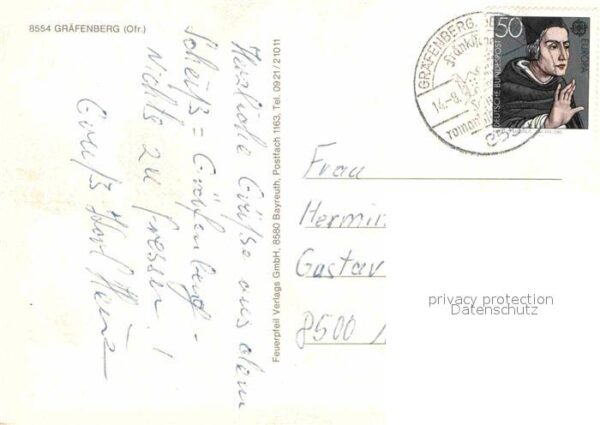 8554 GRÄFENBERG (Ofr.)
Herzliche Grüße aus dem
Scheiß = Gräfenberg -
nichts zu fressen!
Gruß Karl Heinz
Feuerpfeil Verlags GmbH, 8580 Bayreuth, Postfach 1163, Tel. 0921/21011
GRÄFENBERG
14.-8.
855
50
EUROPA
DEUTSCHE BUNDESPOST
Frau
Hermin
Gustav
8500
privacy protection
Datenschutz